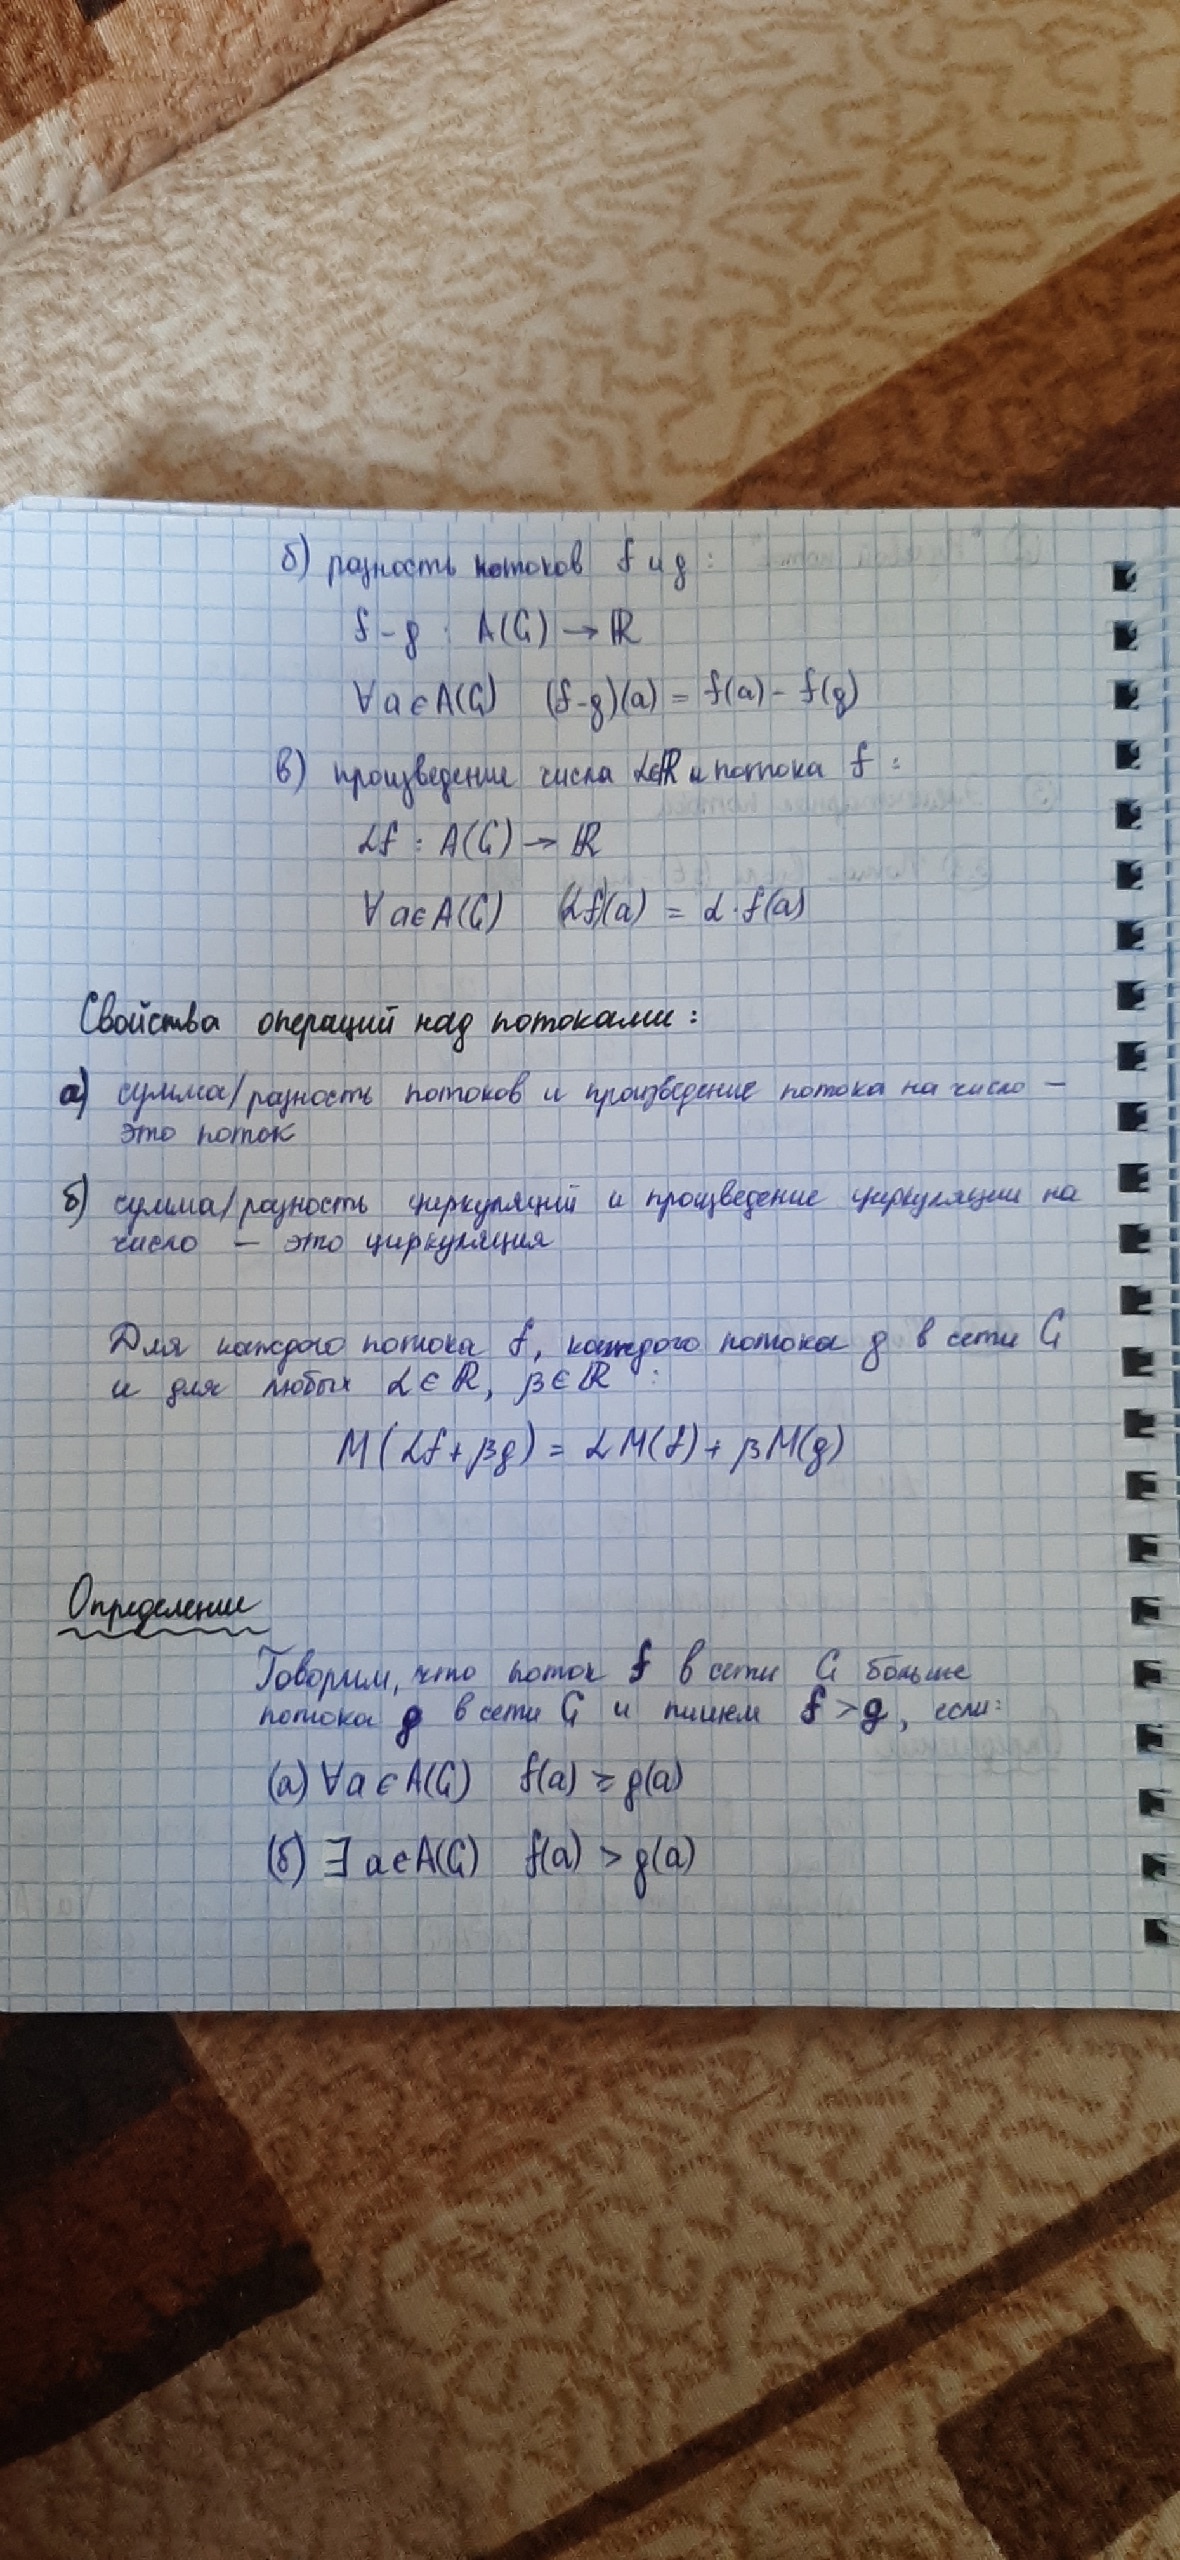 б) разность потоков f и g:
f-g : A(G) → ℝ
∀a∈A(G) (f-g)(a) = f(a) - f(g)
в) произведение числа α∈ℝ и потока f:
αf : A(G) → ℝ
∀a∈A(G) (αf)(a) = α·f(a)
Свойства операций над потоками:
а) сумма/разность потоков и произведение потока на число —
это поток
б) сумма/разность циркуляций и произведение циркуляции на
число — это циркуляция
Для каждого потока f, каждого потока g в сети G
и для любых α∈ℝ, β∈ℝ :
M(αf+βg) = αM(f)+βM(g)
Определение
Говорим, что поток f в сети G больше
потока g в сети G и пишем f>g, если:
(а) ∀a∈A(G) f(a) ≥ g(a)
(б) ∃a∈A(G) f(a) > g(a)